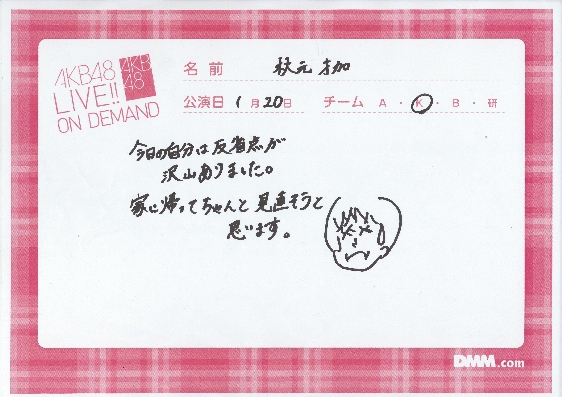 AKB48
LIVE!!
ON DEMAND
AKB
48
名前 秋元才加
公演日 1月20日 チーム A・K・B・研
今日の自分は反省点が
沢山ありました。
家に帰ってちゃんと見直そうと
思います。
DMM.com